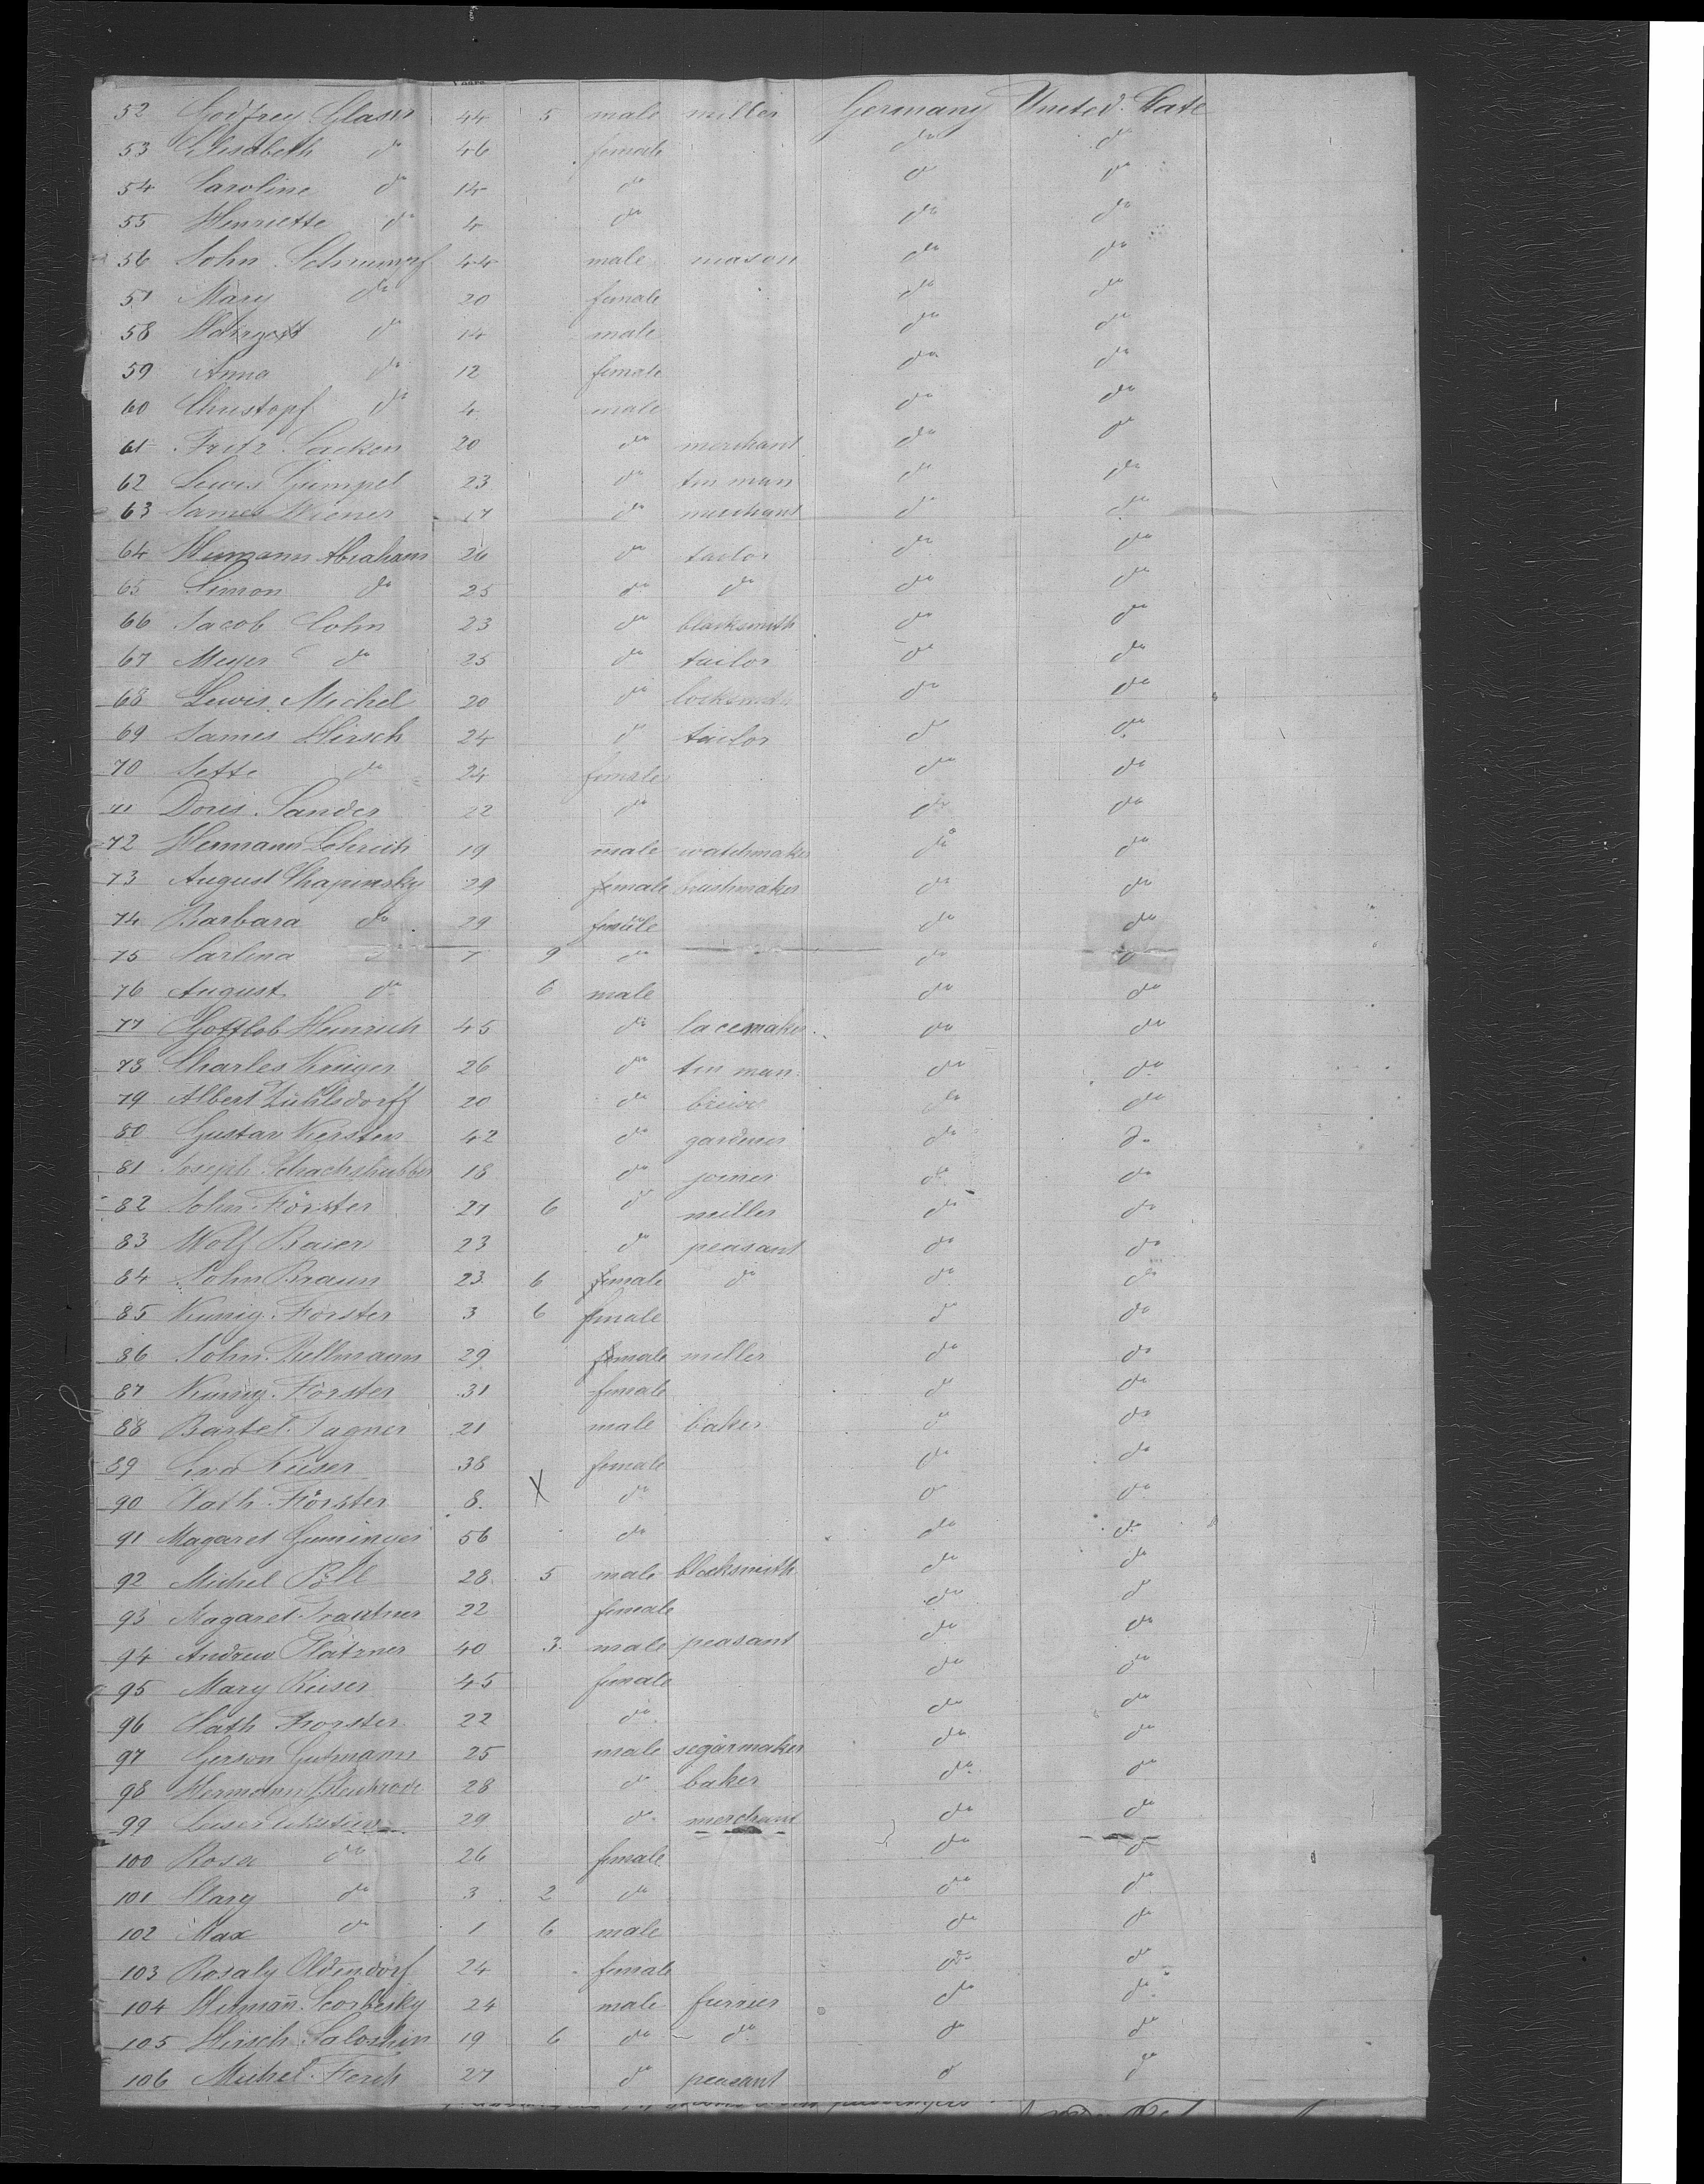 52 Godfrey Glaser 44 5 male miller Germany United State
53 Elisabeth do 46 female do do
54 Caroline do 14 do do do
55 Henriette do 4 do do do
56 John Schrumpf 44 male mason do do
57 Mary do 20 female do do
58 do 14 male do do
59 Anna do 12 female do do
60 Christopf do 4 male do do
61 Fritz Sacken 20 do merchant do do
62 Lewis Gumpel 23 do tin man do do
63 James Wiener 17 do merchant do do
64 Hermann Abraham 26 do tailor do do
65 Simon do 25 do do do do
66 Jacob Cohn 23 do blacksmith do do
67 Meyer do 25 do tailor do do
68 Lewis Michel 20 do locksmith do do
69 James Hirsch 24 do tailor do do
70 Jette do 24 female do do
71 Doris Sander 22 do do do
72 Hermann 19 male watchmaker do do
73 August Chapinsky 29 male brushmaker do do
74 Barbara do 29 female do do
75 Carlina do 9 do do do
76 August do 6 male do do
77 Gottlob Heinrich 45 do lacemaker do do
78 Charles Krüger 26 do tin man do do
79 Albert Zühlsdorff 20 do do do
80 Gustav Kersten 42 do gardener do do
81 Joseph 18 do joiner do do
82 John Förster 27 6 do miller do do
83 Wolf Baier 23 do peasant do do
84 John Braun 23 6 male do do do
85 Kunig. Förster 3 6 female do do
86 John Bellmann 29 male miller do do
87 Kunig. Förster 31 female do do
88 Bartel Tagner 21 male baker do do
89 Eva Rieser 38 female do do
90 Cath. Förster 8 X do do do
91 Magaret 56 do do do
92 Michel Pöll 28 5 male blacksmith do do
93 Magaret Trautner 22 female do do
94 Andrew Plätzner 40 3 male peasant do do
95 Mary Rieser 45 female do do
96 Cath Forster 22 do do do
97 Gerson Gutmann 25 male segarmaker do do
98 Hermann 28 do baker do do
99 29 do merchant do do
100 Rosa do 26 female do do
101 Mary do 3 2 do do do
102 Max do 1 6 male do do
103 Rosaly Oldendorf 24 female do do
104 24 male furrier do do
105 Hirsch 19 6 do do do do
106 Michel Forch 27 do peasant do do